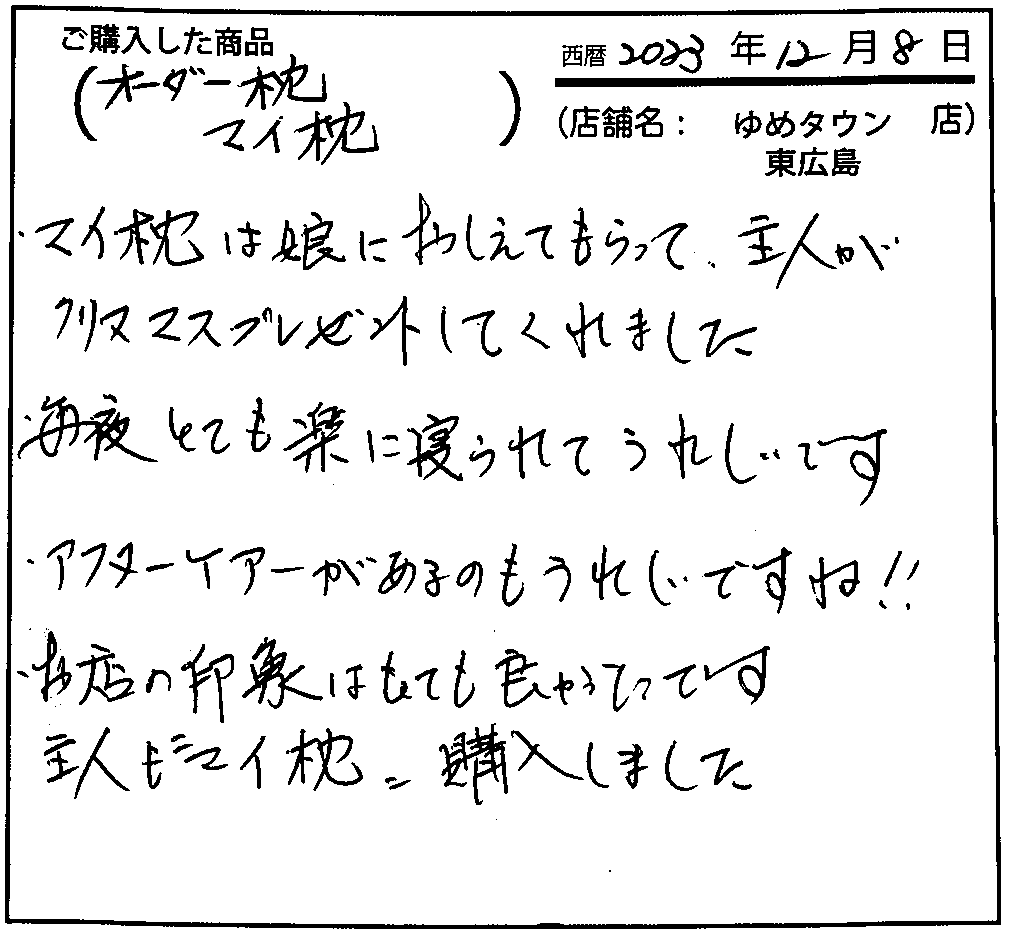 ご購入した商品
(オーダー枕
マイ枕)
西暦 2023 年 12 月 8 日
(店舗名: ゆめタウン 店)
東広島
・マイ枕は娘におしえてもらって、主人が
クリスマスプレゼントしてくれました
・毎夜とても楽に寝られてうれしいです
・アフターケアーがあるのもうれしいですね!!
・お店の印象はとても良かったです
主人も マイ枕 購入しました